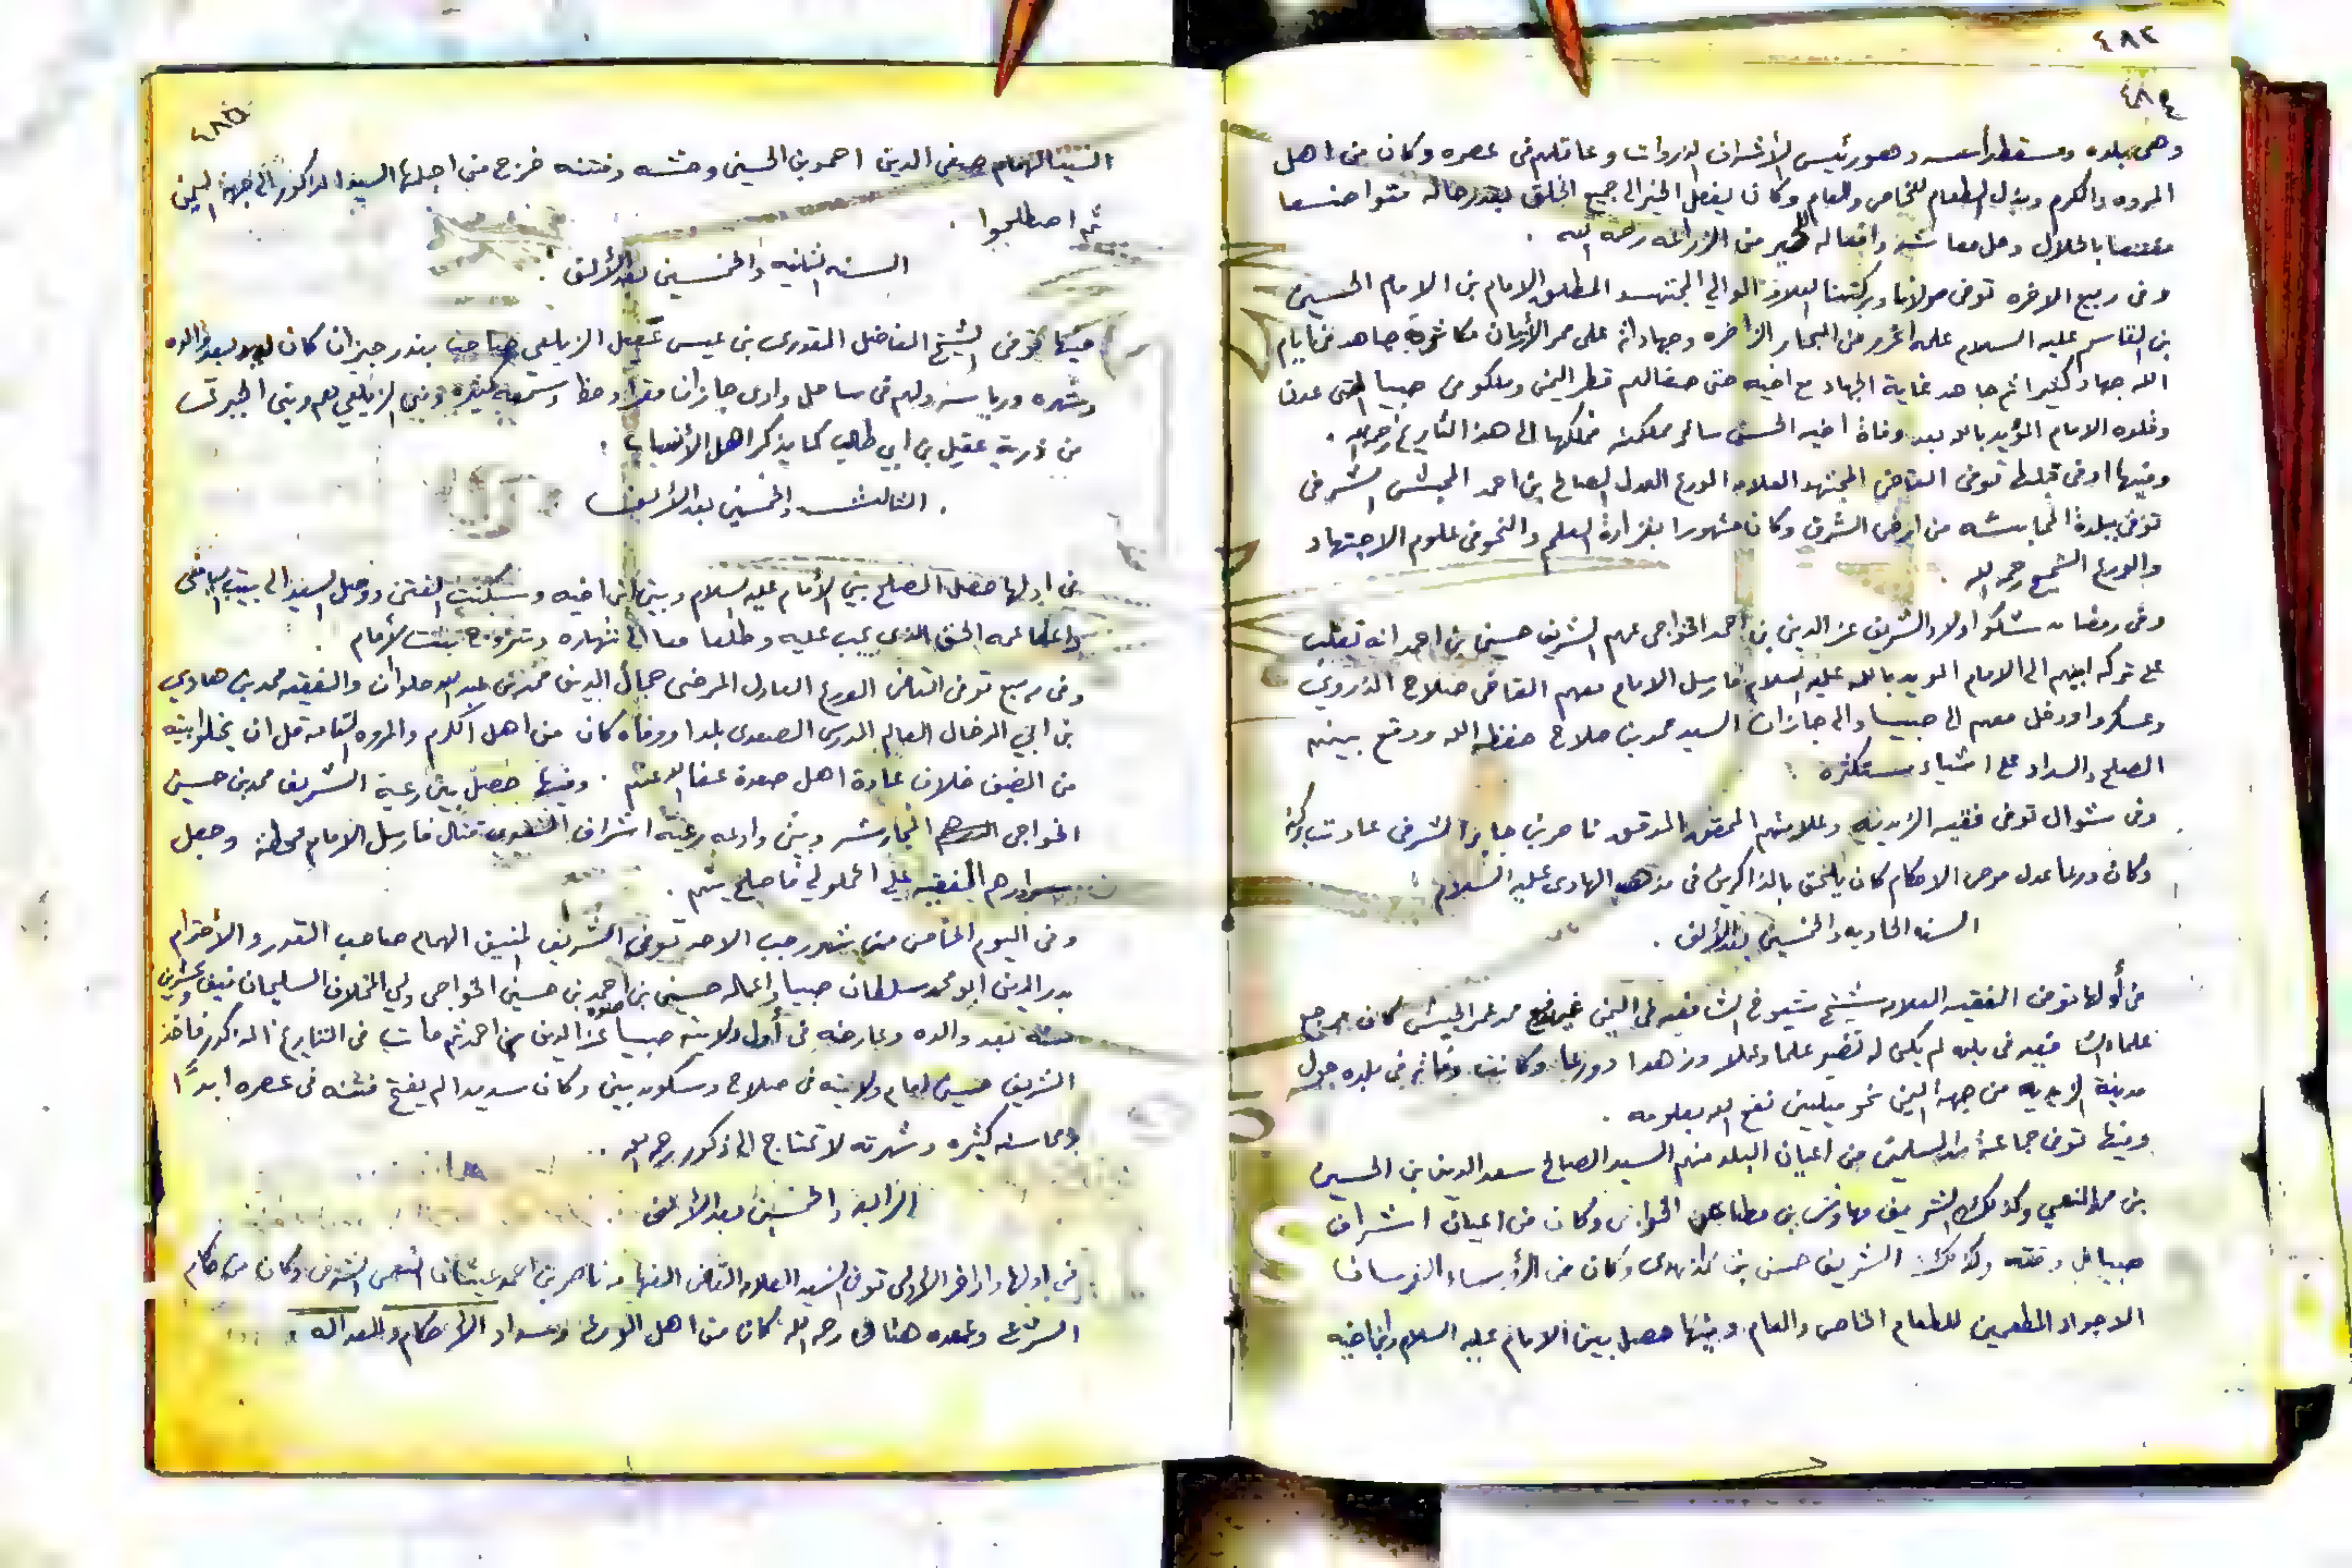 ٤٨٢
٤٨٤
وهي بلده ومسقط رأسه وهو رئيس الأشراف الذروات وعاقلهم في عصره وكان من اهل
المروه والكرم وبذل الطعام للخاص والعام وكان يفعل الخير الى جميع الخلق بقدر حاله متواضعا
مقتنعا بالحلال وحل معاشه وافعاله الخير من الزراعه رحمه الله .
وفي ربيع الاخره توفى مولانا وبركتنا العلامه الوالي المجتهد المطلق الامام بن الامام الحسين
بن القاسم عليه السلام علمه اغزر من البحار الزاخره وجهاداته على ممر الأزمان متكاثره جاهد في ايام
الله جهاد كثيرا ثم جاهد غاية الجهاد مع اخيه حتى صفا لهم قطر اليمن وملكو من صبيا الى عدن
وقلده الامام المؤيد بالله بعد وفاة اخيه الحسن سائر مملكته فملكها الى هذا التاريخ رحمه الله .
وفيها او في قبلها توفى القاضي المجتهد العلامه الورع العدل الصالح بن احمد المحبشي الشرفي
توفى ببلدة المحابشه من ارض الشرف وكان مشهورا بغزارة العلم والنحو في علوم الاجتهاد
والورع الشحيح رحمه الله .
وفي رمضان شكوا اولاد الشريف عز الدين بن احمد الخواجي عمهم الشريف حسين بن احمد انه تغلب
على تركه ابيهم الى الامام المويد بالله عليه السلام فارسل الامام معهم القاضي صلاح الذروي
وعسكر اودخل معهم الى صبيا والى جازان السيد محمد بن صلاح حفظه الله ووقع بينهم
الصلح والسداد على اشياء مستكثره .
وفي شوال توفى فقيه الزيديه وعلامتهم المحقق المدقق ناصر بن جابر الشرفي عادت بركته
وكان ورعا عدل مرضي الاحكام كان يلحق بالذاكرين في مذهب الهادي عليه السلام .
السنه الحاديه والخمسين بعد الألف .
في أولها توفى الفقيه العلامه شيخ شيوخ الشافعيه في اليمن محمد عمر الحبيشي كان مرجع
علماء الشافعيه في بلده لم يكن له نضير علما وعملا وزهدا وورعا وكانت وفاته في بلده حول
مدينة الزيديه من جهة اليمن نحو ميلين نفع الله بعلومه .
وفيها توفى جماعة من المسلمين من اعيان البلد منهم السيد الصالح سعد الدين بن الحسين
بن محمد النعمي وكذلك الشريف مهاوش بن مطاعن الخواجي وكان من اعيان اشراف
صبيا في وقته وكذلك الشريف حسن بن مهدي وكان من الرؤساء الفرسان
الاجواد المطعمين للطعام الخاص والعام وفيها حصل بين الامام عليه السلام وابن اخيه
٤٨٥
السيد الهمام صفي الدين احمد بن الحسين وحشه وفتنه خرج من اجلها السيد المذكور الى جهة اليمن
ثم اصطلحوا .
السنه الثانيه والخمسين بعد الألف .
فيها توفى الشيخ الفاضل القدوري بن عيسى عقيل الزيلعي صاحب بندر جيزان كان له بعد والده
وشهره ورياسه ولهم في ساحل وادي جازان مقرا وحظا وسمعه كثيره وبني الزيلعي هم وبني الجبرتي
من ذرية عقيل بن ابي طالب كما يذكر اهل الأنساب .
الثالثه والخمسين بعد الألف
في اولها حصل الصلح بين الأمام عليه السلام وبين ابن اخيه وسكنت الفتن ووصل السيد الى بيت
واعطا عمه الحق الذي يجب عليه وطلعا معا الى شهاره وتزوج بنت الأمام .
وفي ربيع توفى القاضي الورع العادل المرضي جمال الدين محمد بن عبدالله حلوان والفقيه محمد بن هادي
بن ابي الرجال العالم المدرس الصعدي بلدا ووفاه كان من اهل الكرم والمروه التامه قل ان يخلو بيته
من الضيف خلاف عادة اهل صعدة عفا الله عنهم . وفيها حصل بين رعية الشريف محمد بن حسين
الخواجي وبين وادعه رعيه اشراف قتال فارسل الامام محطه وجعل
الفقيه علي الحملولي فاصلح بينهم .
وفي اليوم الخامس من شهر رجب الاحد توفى الشريف المنيف الهمام صاحب القدر والأحترام
بدر الدين ابو محمد سلطان صبيا واعماله حسين بن احمد بن حسين الخواجي ولي المخلاف السليماني نيف وعشرين
سنه بعد والده وعارضه في أول ولايته صبيا صنوه عز الدين بن احمد ثم مات في التاريخ المذكور فاخذ
الشريف حسين ايام ولايته في صلاح وسكون بيني وكان سديدا لم يفتح فتنه في عصره ابدًا
ومحاسنه كثيره وشهرته لا تحتاج الى ذكور رحمه الله .
الرابعه والخمسين بعد الألف
في اولها واواخر الأولى توفى السيد العلامه القاضي الفهامه ناصر بن احمد عيشان النعمي الشرفي وكان من حكام
الشرع وعمده هنالك رحمه الله كان من اهل الورع وسداد الأحكام والعداله .